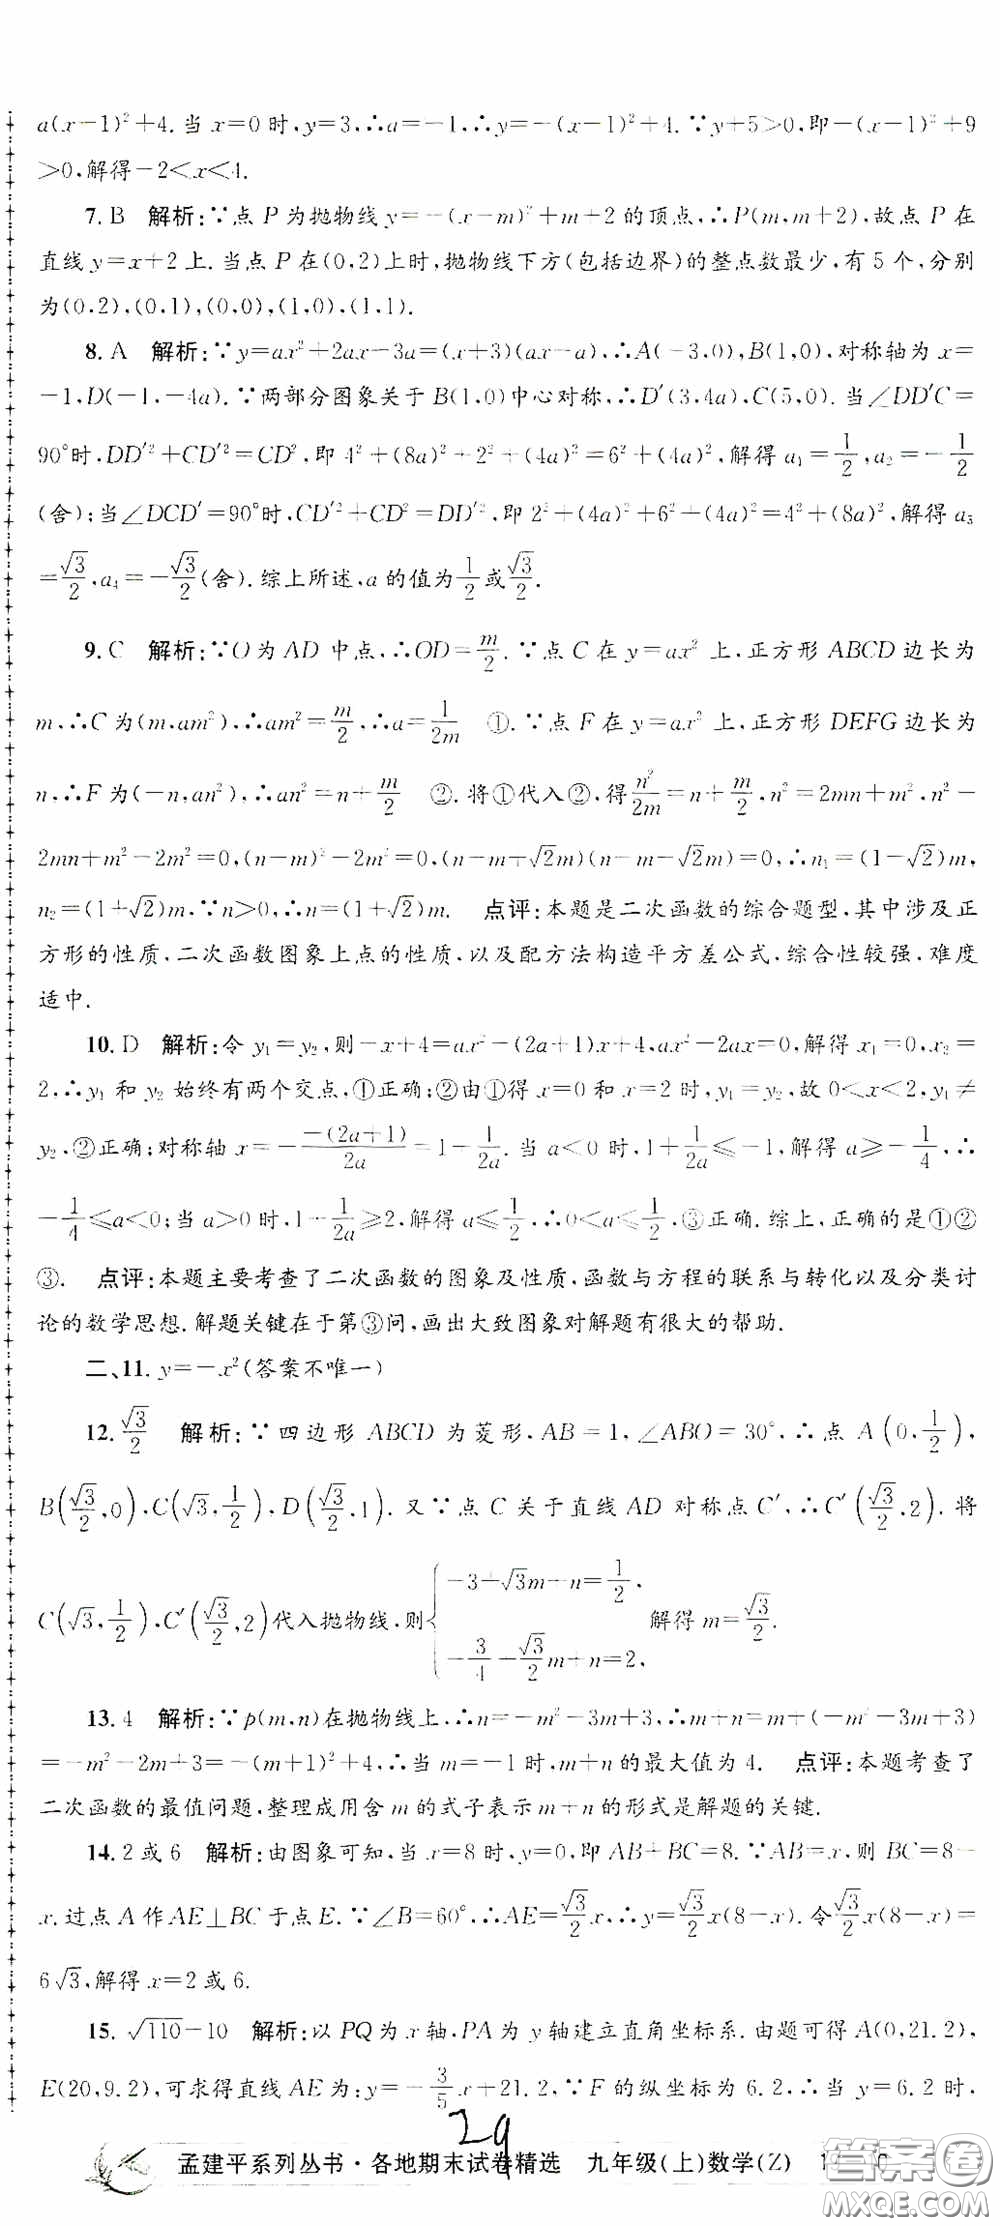 a(x−1)²+4.当 x=0 时,y=3,∴a=−1,∴y=−(x−1)²+4.∵y+5>0,即−(x−1)²+9
>0,解得−2<x<4.
7. B 解析:∵点 P 为抛物线 y=−(x−m)²+m+2 的顶点,∴P(m,m+2),故点 P 在
直线 y=x+2 上.当点 P 在(0,2)上时,抛物线下方(包括边界)的整点数最少,有 5 个,分别
为(0,2),(0,1),(0,0),(1,0),(1,1).
8. A 解析:∵y=ax²+2ax−3a=(x+3)(ax−a),∴A(−3,0),B(1,0),对称轴为 x=
−1,D(−1,−4a).∵两部分图象关于 B(1,0)中心对称,∴D′(3,4a),C(5,0).当∠DD′C=
90°时,DD′²+CD′²=CD²,即 4²+(8a)²+2²+(4a)²=6²+(4a)²,解得 a₁=1/2,a₂=−1/2
(舍);当∠DCD′=90°时,CD′²+CD²=DD′²,即 2²+(4a)²+6²+(4a)²=4²+(8a)²,解得 a₃
=√3/2,a₄=−√3/2(舍).综上所述,a 的值为1/2或√3/2.
9. C 解析:∵O 为 AD 中点,∴OD=m/2.∵点 C 在 y=ax² 上,正方形 ABCD 边长为
m,∴C 为(m,am²),∴am²=m/2,∴a=1/2m ①.∵点 F 在 y=ax² 上,正方形 DEFG 边长为
n,∴F 为(−n,an²),∴an²=n+m/2 ②.将①代入②,得n²/2m=n+m/2,n²=2mn+m²,n²−
2mn+m²−2m²=0,(n−m)²−2m²=0,(n−m+√2m)(n−m−√2m)=0,∴n₁=(1−√2)m,
n₂=(1+√2)m,∵n>0,∴n=(1+√2)m. 点评:本题是二次函数的综合题型,其中涉及正
方形的性质,二次函数图象上点的性质,以及配方法构造平方差公式,综合性较强,难度
适中.
10. D 解析:令 y₁=y₂,则−x+4=ax²−(2a+1)x+4,ax²−2ax=0,解得 x₁=0,x₂=
2,∴y₁ 和 y₂ 始终有两个交点,①正确;②由①得 x=0 和 x=2 时,y₁=y₂,故 0<x<2,y₁≠
y₂,②正确;对称轴 x=−−(2a+1)/2a=1−1/2a.当 a<0 时,1+1/2a≤−1,解得 a≥−1/4,∴
−1/4≤a<0;当 a>0 时,1−1/2a≥2,解得 a≤1/2,∴0<a≤1/2,③正确.综上,正确的是①②
③. 点评:本题主要考查了二次函数的图象及性质,函数与方程的联系与转化以及分类讨
论的数学思想.解题关键在于第③问,画出大致图象对解题有很大的帮助.
二、11. y=−x²(答案不唯一)
12. √3/2 解析:∵四边形 ABCD 为菱形,AB=1,∠ABO=30°,∴点 A(0,1/2),
B(√3/2,0),C(√3,1/2),D(√3/2,1).又∵点 C 关于直线 AD 对称点 C′,∴C′(√3/2,2).将
C(√3,1/2),C′(√3/2,2)代入抛物线,则{−3+√3m+n=1/2, −3/4+√3/2m+n=2, 解得 m=√3/2.
13. 4 解析:∵p(m,n)在抛物线上,∴n=−m²−3m+3,∴m+n=m+(−m²−3m+3)
=−m²−2m+3=−(m+1)²+4,∴当 m=−1 时,m+n 的最大值为 4. 点评:本题考查了
二次函数的最值问题,整理成用含 m 的式子表示m+n 的形式是解题的关键.
14. 2 或 6 解析:由图象可知,当 x=8时,y=0,即 AB+BC=8.∵AB=x,则 BC=8−
x.过点 A 作 AE⊥BC 于点 E.∵∠B=60°,∴AE=√3/2x,∴y=√3/2x(8−x).令√3/2x(8−x)=
6√3,解得 x=2 或 6.
15. √110−10 解析:以 PQ 为 x 轴,PA 为 y 轴建立直角坐标系.由题可得 A(0,21.2),
E(20,9.2),可求得直线 AE 为:y=−3/5x+21.2,∵F 的纵坐标为 6.2,∴当 y=6.2 时,
29
孟建平系列丛书·各地期末试卷精选 九年级(上)数学(Z)
答案圈
MXQE.COM